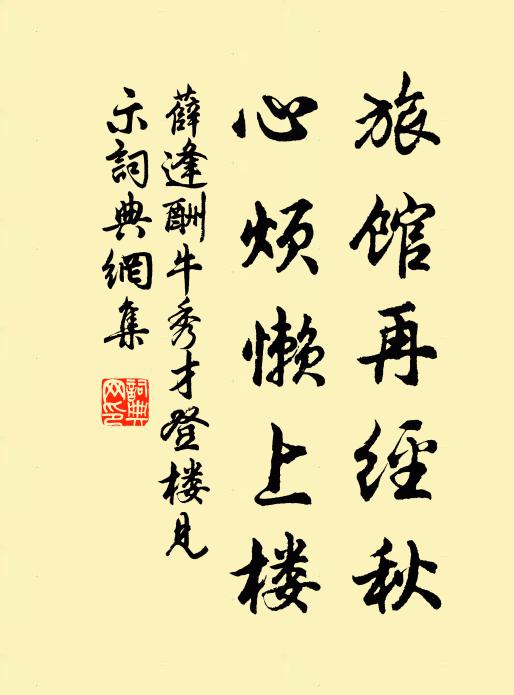 旅馆再經秋
心烦懒上楼
薛逢酬牛秀才登楼見
示詞典網集
詞典
网印